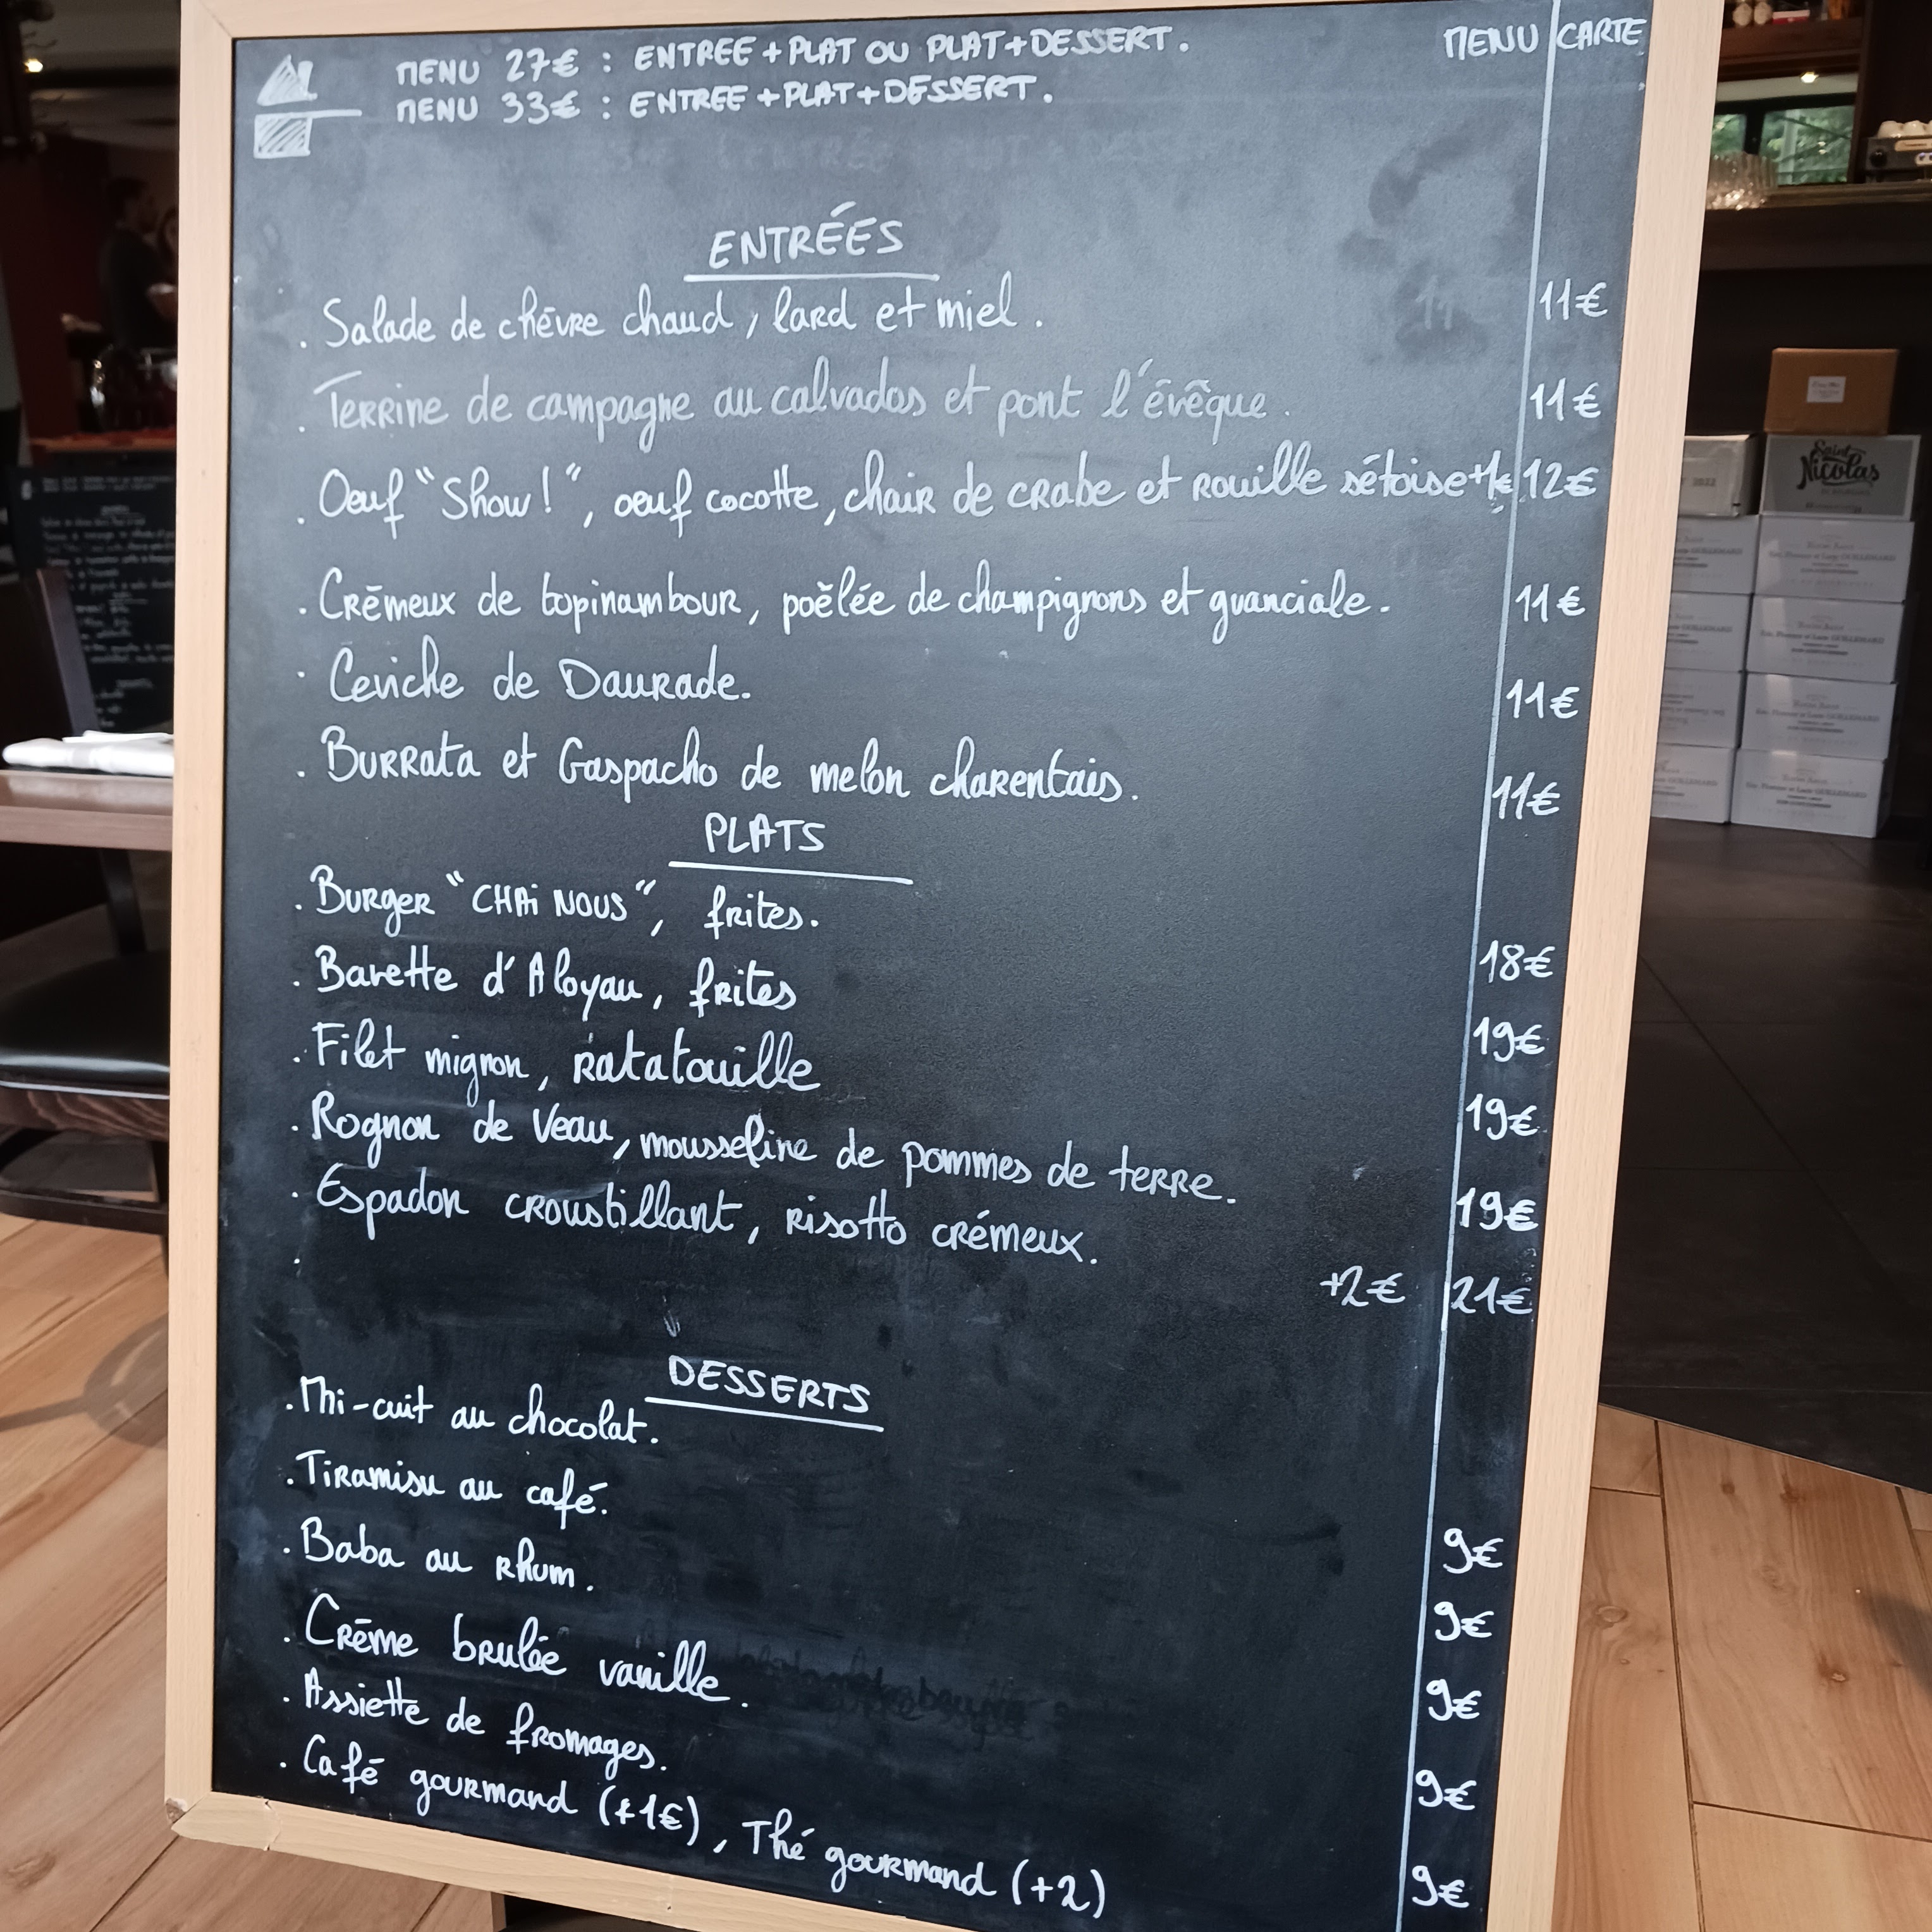 MENU 27€ : ENTREE + PLAT OU PLAT + DESSERT.
MENU 33€ : ENTREE + PLAT + DESSERT.
MENU CARTE
ENTRÉES
. Salade de chèvre chaud, lard et miel. 11€
. Terrine de campagne au calvados et pont l'évêque. 11€
. Oeuf "Show!", oeuf cocotte, chair de crabe et rouille sétoise +1€ 12€
. Crémeux de topinambour, poêlée de champignons et guanciale. 11€
. Ceviche de Daurade. 11€
. Burrata et Gaspacho de melon charentais. 11€
PLATS
. Burger "CHAI NOUS", frites. 18€
. Bavette d'Aloyau, frites 19€
. Filet mignon, ratatouille 19€
. Rognon de Veau, mousseline de pommes de terre. 19€
. Espadon croustillant, risotto crémeux. +2€ 21€
.
DESSERTS
. Mi-cuit au chocolat. 9€
. Tiramisu au café. 9€
. Baba au rhum. 9€
. Crème brulée vanille. 9€
. Assiette de fromages. 9€
. Café gourmand (+1€), Thé gourmand (+2)
Saint
Nicolas
2022